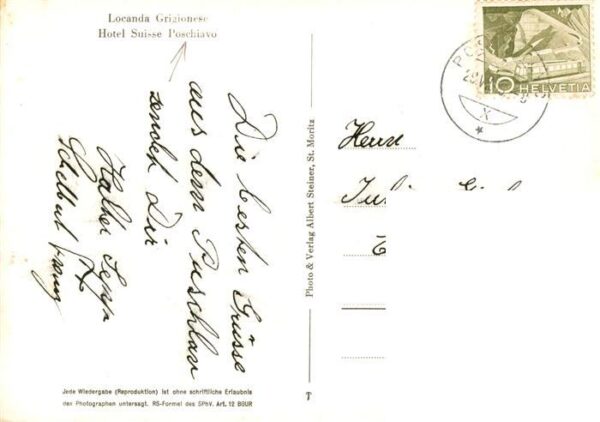 Locanda Grigionese
Hotel Suisse Poschiavo
Die besten Grüsse
aus dem Puschlav
sendet Dir
Halter Sepp
Photo & Verlag Albert Steiner, St. Moritz
Herrn
10 HELVETIA
Jede Wiedergabe (Reproduktion) ist ohne schriftliche Erlaubnis
des Photographen untersagt. RS-Formel des SPhV. Art. 12 BGUR